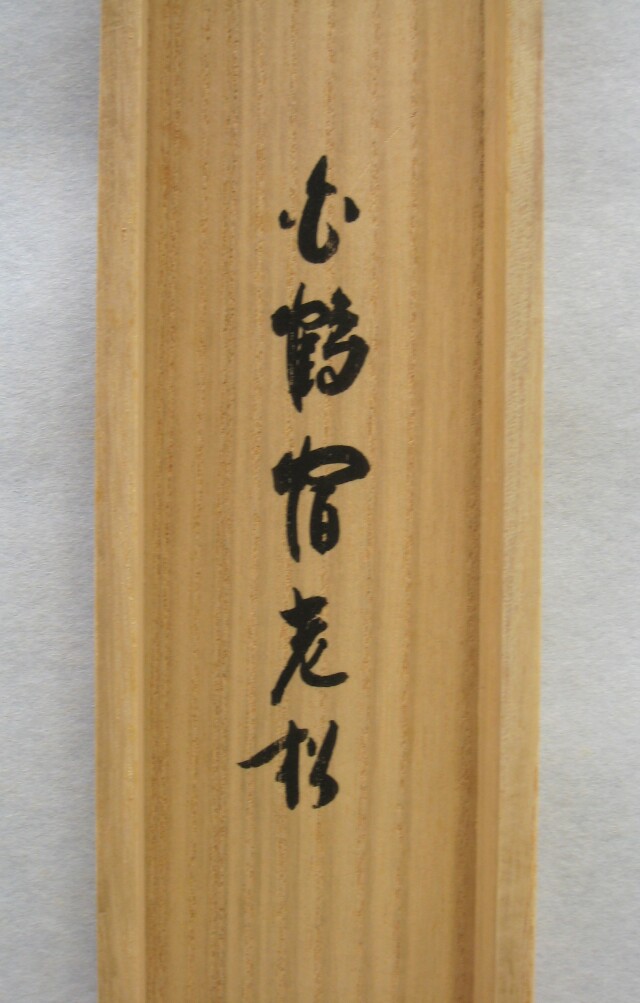 白鶴宿老松